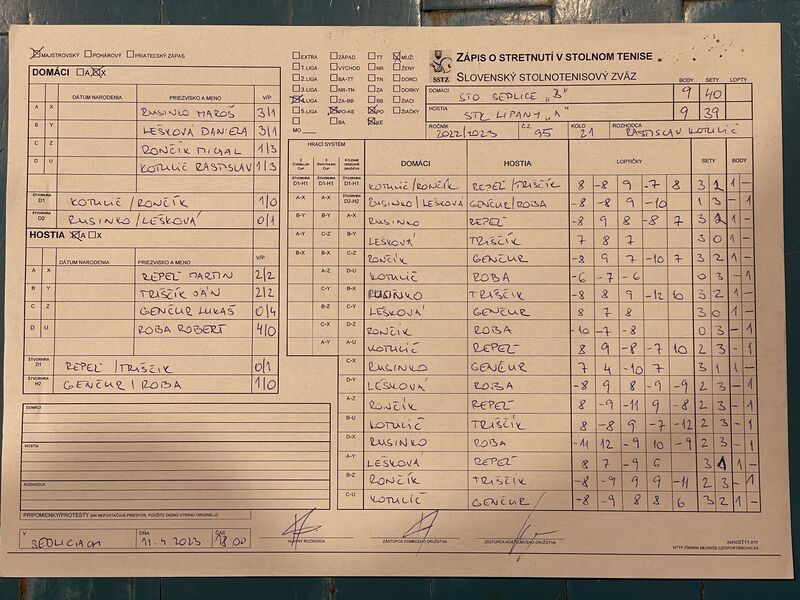 MAJSTROVSKÝ POHÁROVÝ PRIATEĽSKÝ ZÁPAS
DOMÁCI A X
DÁTUM NARODENIA PRIEZVISKO A MENO V/P
A X RUSINKO MAROŠ 3/1
B Y LEŠKOVÁ DANIELA 3/1
C Z RONČÍK MICHAL 1/3
D U KOTULIČ RASTISLAV 1/3
ŠTVORHRA D1 KOTULIČ/RONČÍK 1/0
ŠTVORHRA D2 RUSINKO/LEŠKOVÁ 0/1
HOSTIA A X
DÁTUM NARODENIA PRIEZVISKO A MENO V/P
A X REPEĽ MARTIN 2/2
B Y TRIŠČÍK JÁN 2/2
C Z GENČUR LUKÁŠ 0/4
D U ROBA ROBERT 4/0
ŠTVORHRA D1 REPEĽ/TRIŠČÍK 0/1
ŠTVORHRA H2 GENČUR/ROBA 1/0
DOMÁCI
HOSTIA
ROZHODCA
PRIPOMIENKY/PROTESTY (AK NEPOSTAČUJE PRIESTOR, POUŽITE ZADNÚ STRANU ORIGINÁLU)
V SEDLICIACH DŇA 11.4.2023 ČAS 18.00
EXTRA ZÁPAD TT MUŽI
1.LIGA VÝCHOD NR ŽENY
2.LIGA BA-TT TN DORCI
3.LIGA NR-TN ZA DORKY
4.LIGA ZA-BB BB ŽIACI
5.LIGA PO-KE PO ŽIAČKY
BA KE
MO
SSTZ
ZÁPIS O STRETNUTÍ V STOLNOM TENISE
SLOVENSKÝ STOLNOTENISOVÝ ZVÄZ
BODY SETY LOPTY
DOMÁCI STO SEDLICE "B" 9 40
HOSTIA STK LIPANY "A" 9 39
ROČNÍK 2022/2023 ČZ 95 KOLO 21 ROZHODCA RASTISLAV KOTULIČ
HRACÍ SYSTÉM
DOMÁCI HOSTIA LOPTIČKY SETY BODY
D1-H1 D1-H1 D1-H1 KOTULIČ/RONČÍK REPEĽ/TRIŠČÍK 8 -8 9 -7 8 3 2 1 -
A-X A-X D2-H2 RUSINKO/LEŠKOVÁ GENČUR/ROBA 8 -8 -9 -10 1 3 - 1
B-Y B-Y A-X RUSINKO REPEĽ -8 9 8 -8 7 3 2 1 -
A-Y C-Z B-Y LEŠKOVÁ TRIŠČÍK 7 8 7 3 0 1 -
B-X B-X C-Z RONČÍK GENČUR -8 9 7 -10 7 3 2 1 -
A-Z D-U KOTULIČ ROBA -6 -7 -6 0 3 - 1
C-Y B-X RUSINKO TRIŠČÍK -8 8 9 -12 10 3 2 1 -
B-Z C-Y LEŠKOVÁ GENČUR 8 7 8 3 0 1 -
C-X D-Z RONČÍK ROBA -10 -7 -8 0 3 - 1
A-Y A-U KOTULIČ REPEĽ 8 9 -8 -7 10 2 3 - 1
C-X RUSINKO GENČUR 7 4 -10 7 3 1 1 -
D-Y LEŠKOVÁ ROBA -8 9 8 -9 -9 2 3 - 1
A-Z RONČÍK REPEĽ 8 -9 -11 9 -8 2 3 - 1
B-U KOTULIČ TRIŠČÍK 8 -8 9 -7 -12 2 3 - 1
D-X RUSINKO ROBA -11 12 -9 10 -9 2 3 - 1
A-Y LEŠKOVÁ REPEĽ 8 7 -9 6 3 1 1 -
B-Z RONČÍK TRIŠČÍK -8 -9 9 9 -11 2 3 - 1
C-U KOTULIČ GENČUR -8 -9 8 8 6 3 2 1 -
HLAVNÝ ROZHODCA ZÁSTUPCA DOMÁCEHO DRUŽSTVA ZÁSTUPCA HOSŤUJÚCEHO DRUŽSTVA
ZAPISST11.RTF
HTTP://WWW.MUJWEB.CZ/SPORT/MICHALKA